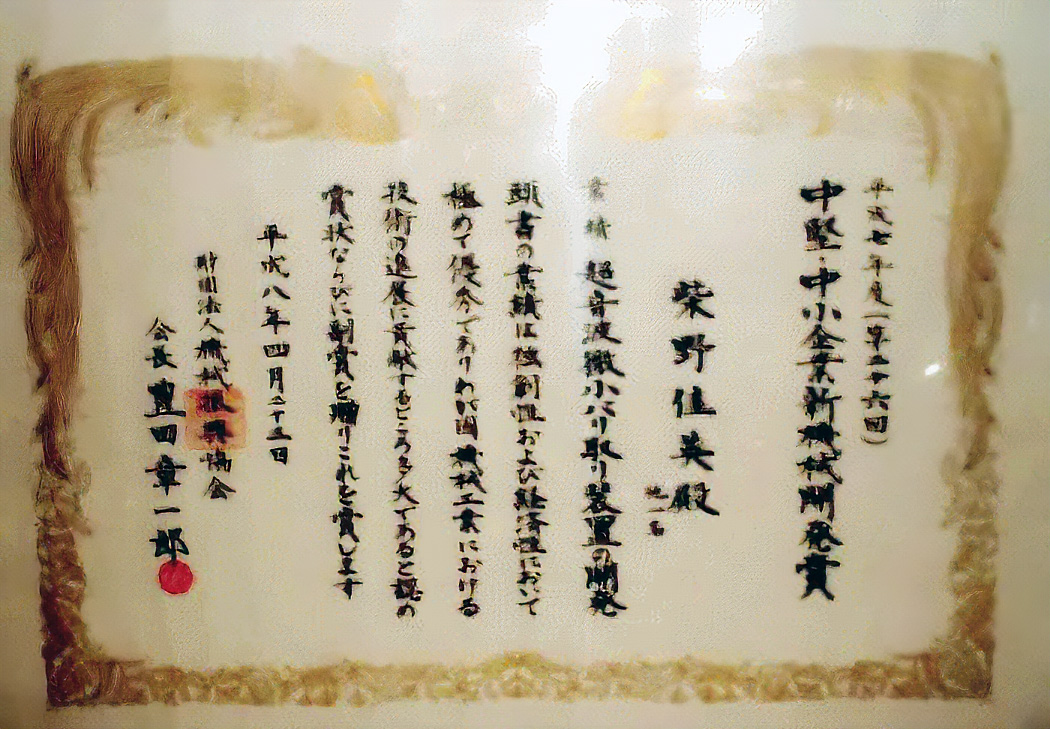 平成七年度(第二十六回)
中堅・中小企業新機械開発賞
柴野佳英殿
業績 超音波微小バリ取り装置の開発
頭書の業績は独創性および経済性において
極めて優秀でありわが国機械工業における
技術の進展に貢献するところ多大であると認め
賞状ならびに副賞を贈りこれを賞します
平成八年四月二十三日
財団法人機械振興協会
会長 豊田章一郎